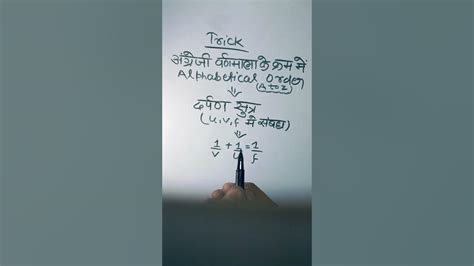 Trick
अंग्रेजी वर्णमाला के क्रम में
Alphabetical Order
(A to Z)
⇓
दर्पण सूत्र
(u,v,f में संबंध)
⇓
1/v + 1/u = 1/f